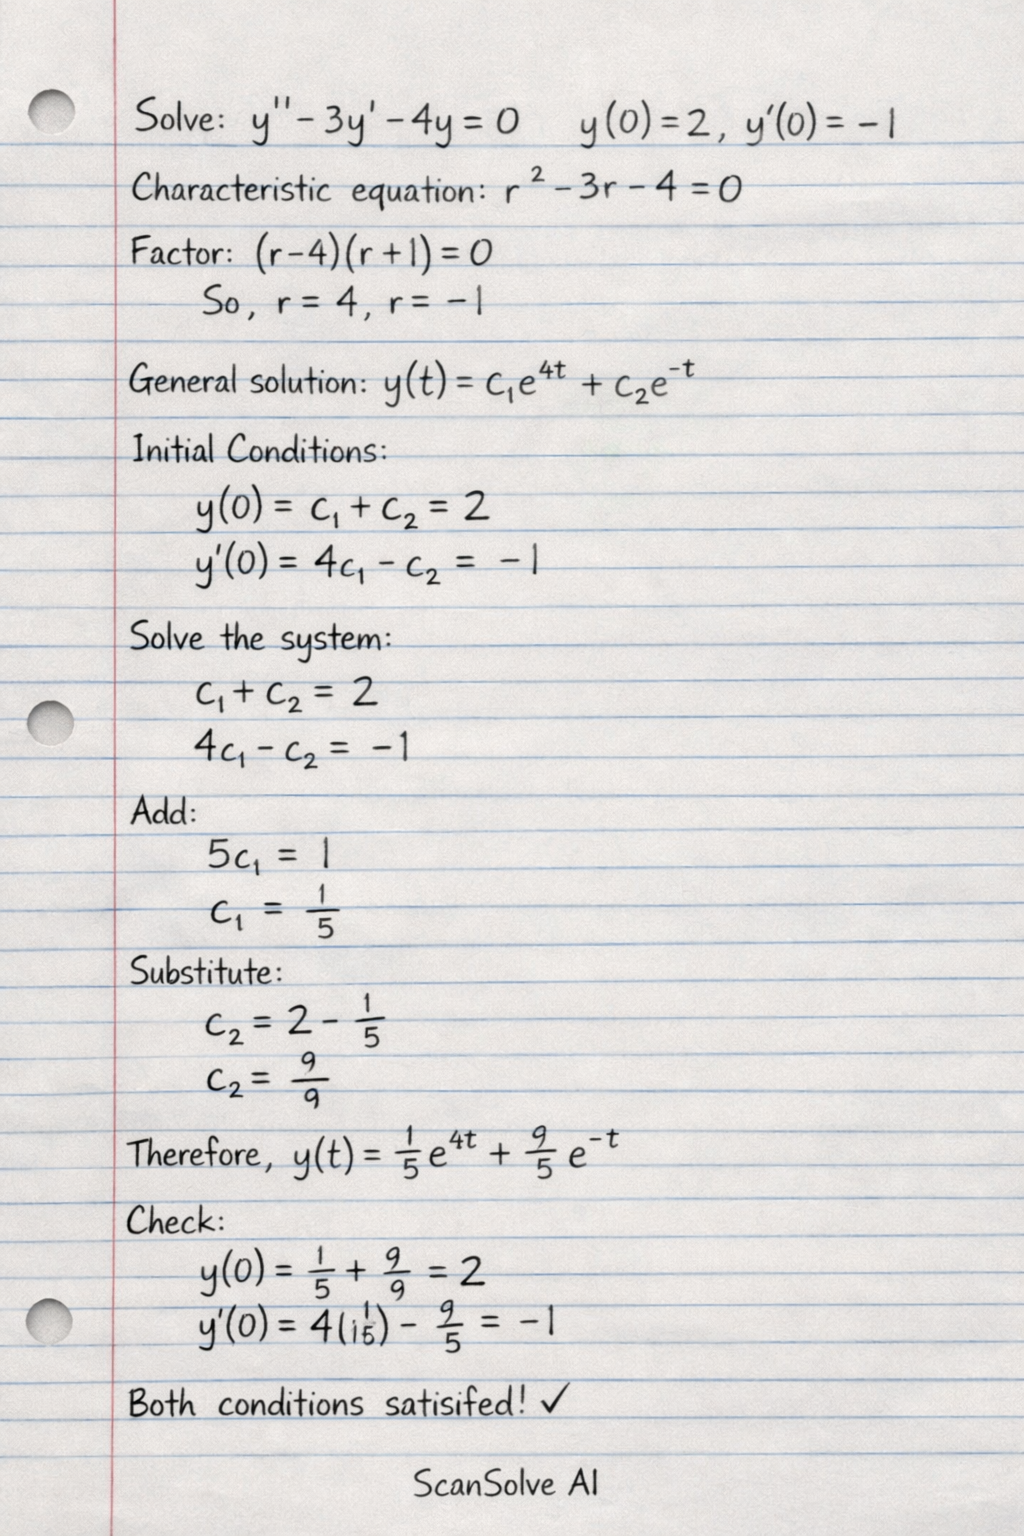 Solve: y'' - 3y' - 4y = 0 y(0) = 2, y'(0) = -1
Characteristic equation: r² - 3r - 4 = 0
Factor: (r-4)(r+1) = 0
So, r = 4, r = -1
General solution: y(t) = c₁e⁴ᵗ + c₂e⁻ᵗ
Initial Conditions:
y(0) = c₁ + c₂ = 2
y'(0) = 4c₁ - c₂ = -1
Solve the system:
c₁ + c₂ = 2
4c₁ - c₂ = -1
Add:
5c₁ = 1
c₁ = 1/5
Substitute:
c₂ = 2 - 1/5
c₂ = 9/9
Therefore, y(t) = 1/5 e⁴ᵗ + 9/5 e⁻ᵗ
Check:
y(0) = 1/5 + 9/9 = 2
y'(0) = 4( ) - 9/5 = -1
Both conditions satisifed! ✓
ScanSolve AI